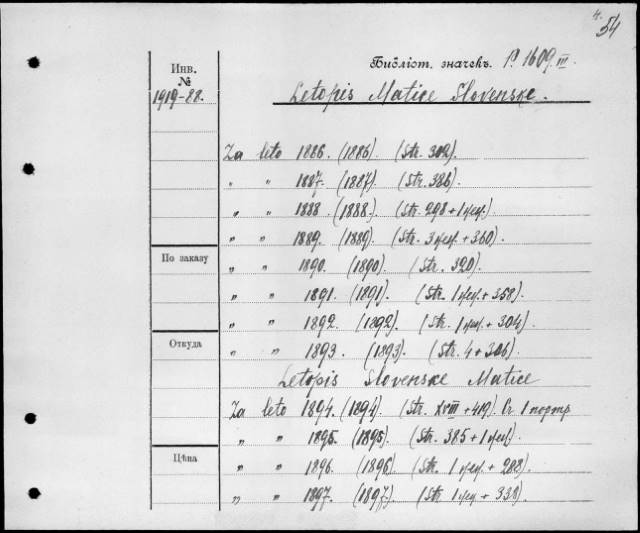 4.
54
Инв.
№
1919-88.
Библіот. значекъ. P. 1609.III.
Letopis Matice Slovenske.
Za leto 1886. (1886). (Str. 302).
" " 1887. (1887). (Str. 386).
" " 1888. (1888.) (Str. 298 + 1 неи.)
" " 1889. (1889). (Str. 3 неи. + 360).
По заказу
" " 1890. (1890). (Str. 320).
" " 1891. (1891). (Str. 1 неи. + 358).
" " 1892. (1892). (Str. 1 неи. + 304).
Откуда
" " 1893. (1893). (Str. 4 + 306).
Letopis Slovenske Matice
Za leto 1894. (1894). (Str. XVIII + 419). Съ 1 портр
" " 1895. (1895). (Str. 385 + 1 неи).
Цѣна
" " 1896. (1896). (Str. 1 неи. + 288).
" " 1897. (1897.) (Str 1 неи + 338).